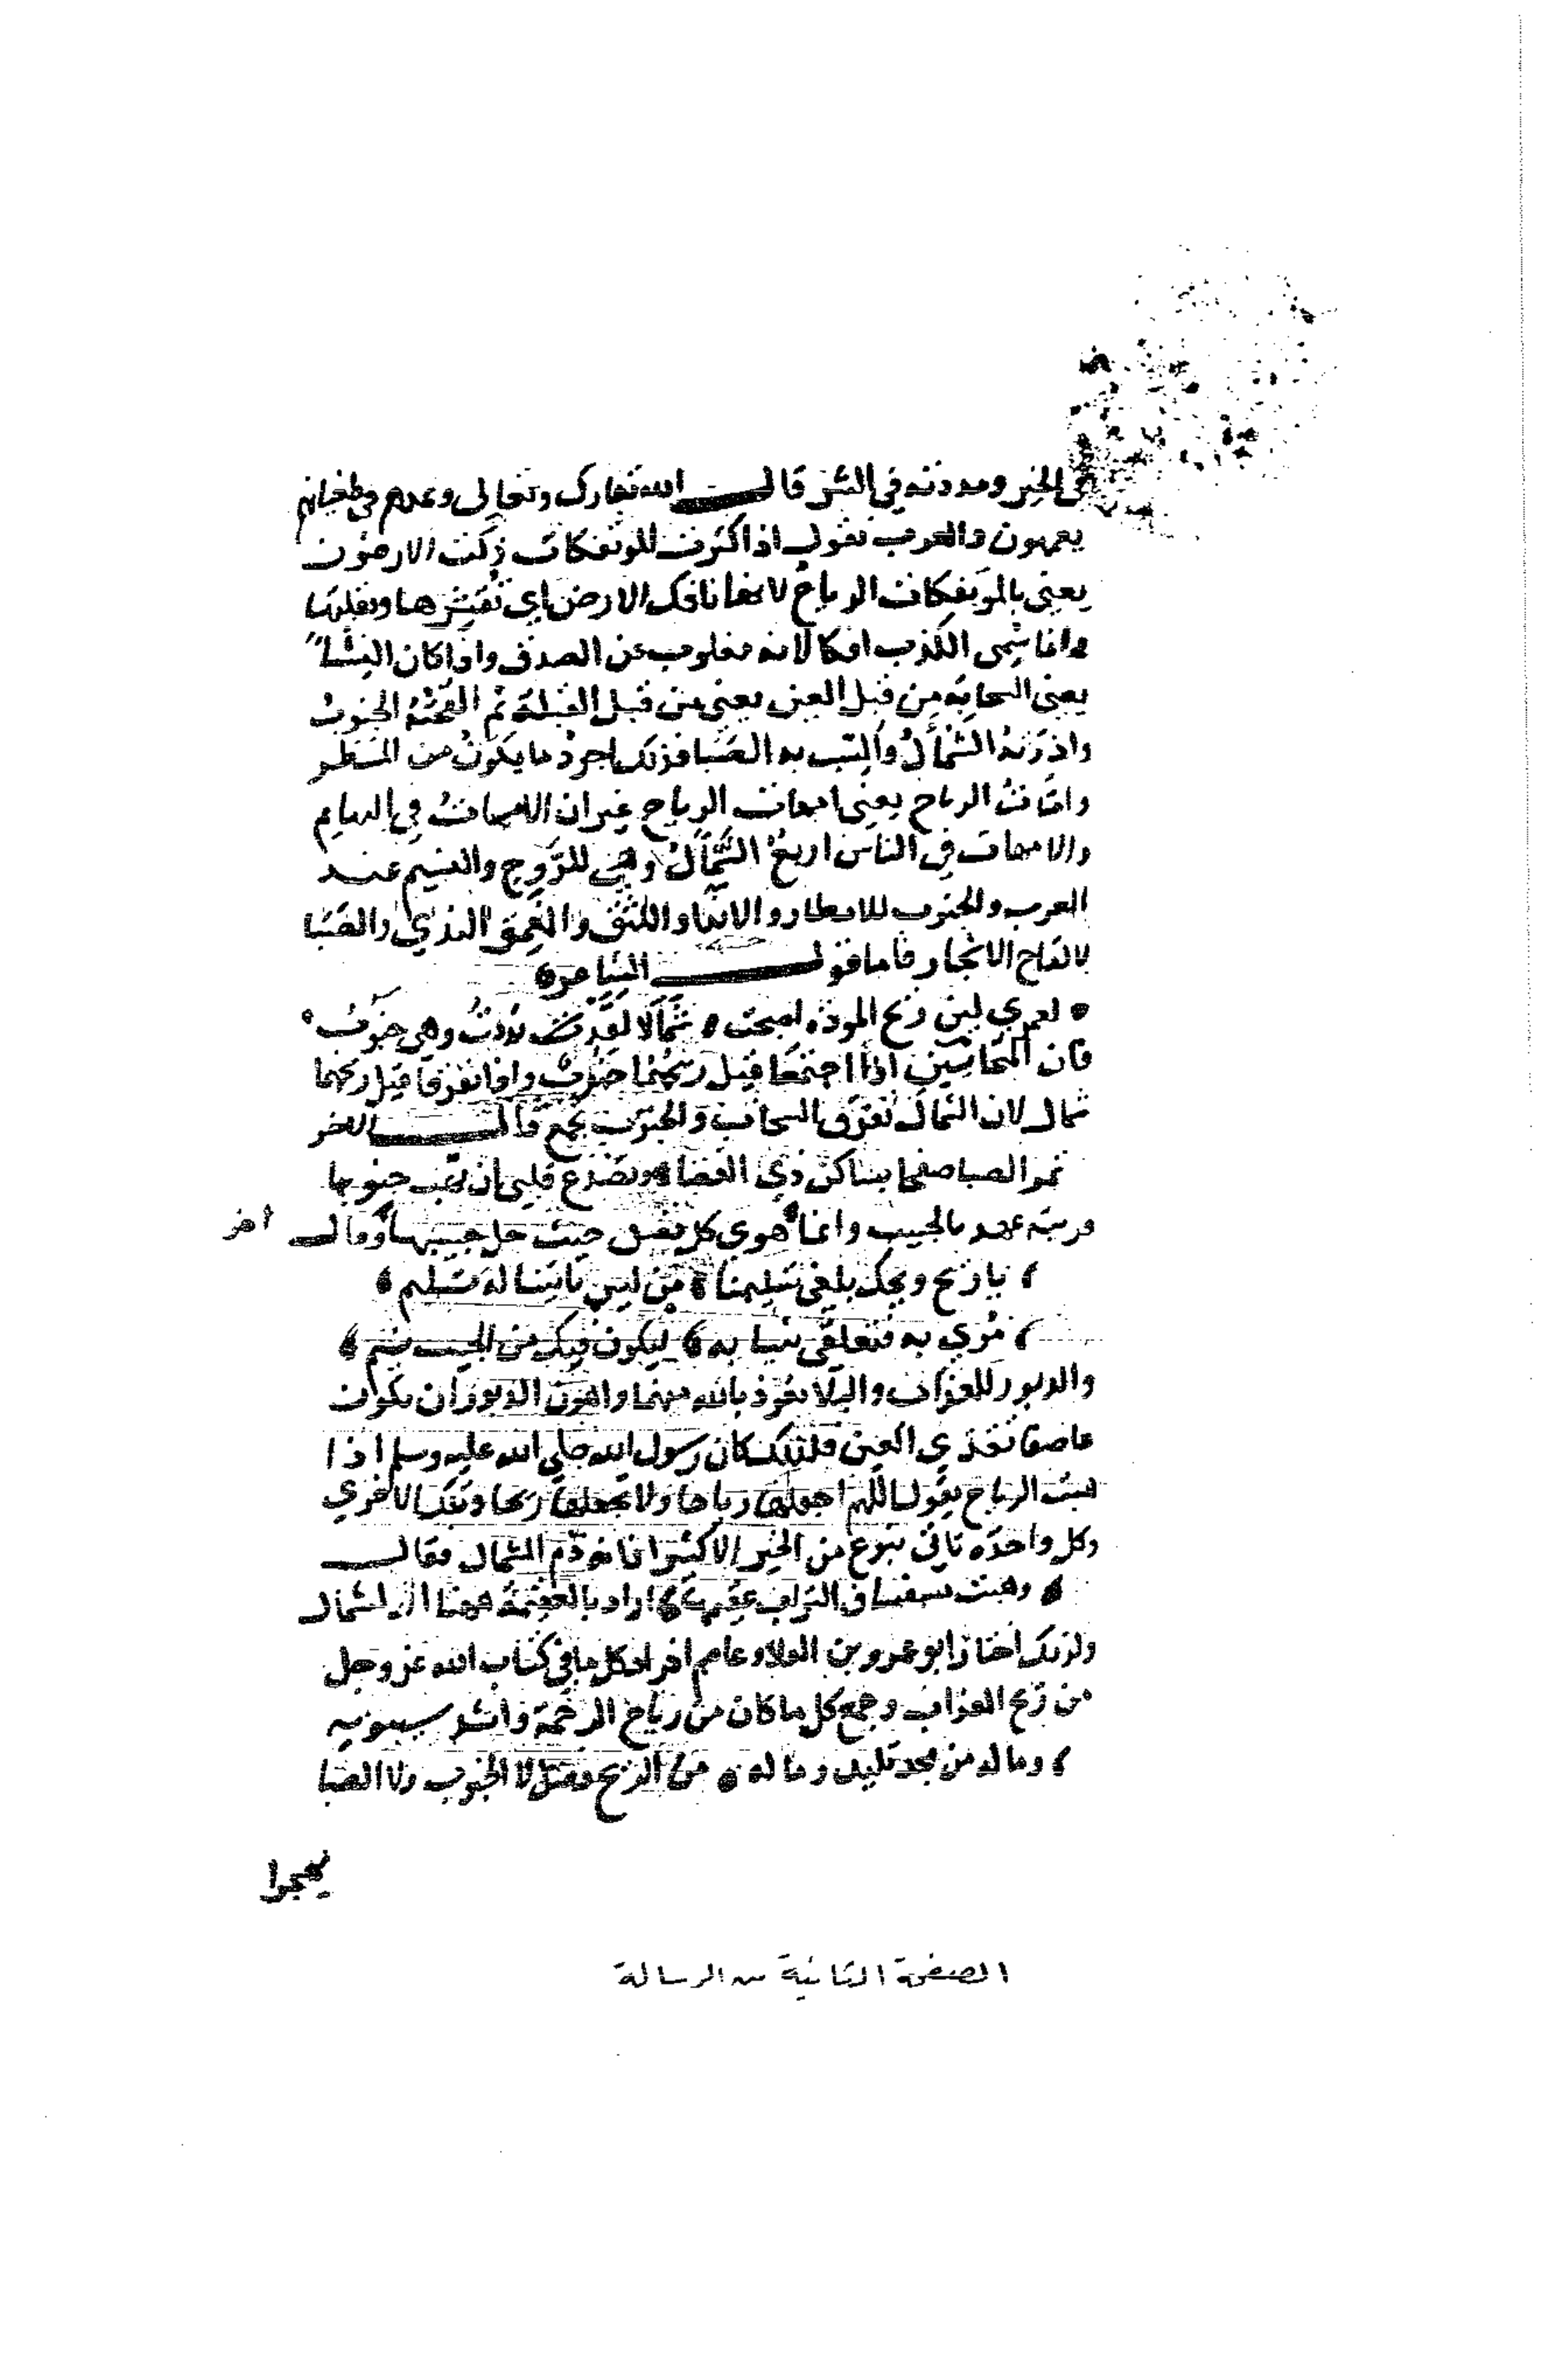 في الخير ومددته في الشر قال الله تبارك وتعالى ويمدهم في طغيانهم
يعمهون والعرب تقول اذا كثرت المؤتفكات زكت الارضون
يعني بالمؤتفكات الرياح لانها تافك الارض اي تقشرها وتقلبها
وانما سمى الكذب افكا لانه مقلوب عن الصدق واذا كان النشأ
يعنى السحابة من قبل العين يعني من قبل القبلة ثم القحته الجنوب
واذرته الشمأل والتب به الصبا فذلك اجود ما يكون من المطر
واما ت الرياح يعني امهات الرياح غير ان الامات في البهايم
والامهات في الناس اربع الشمأل وهي للروح والنسيم عند
العرب والجنوب للامطار والاندا واللثق والغمق الندي والصبا
لالقاح الاشجار فاما قول الشاعر
لعمري لين ريح المودة اصبحت شمالا لقد بدلت وهي جنوب
فان المتحابين اذا اجتمعا قيل ريحهما جنوب واذا تفرقا قيل ريحهما
شمال لان الشمال تفرق السحاب والجنوب تجمع قال الاخر
تمر الصبا صفحا بساكن ذي الغضا ويصدع قلبي ان تهب جنوبها
قريبة عهد بالحبيب وانما هوى كل نفس حيث حل حبيبها وقال اخر
يا ريح ويحك بلغي تسليمنا من ليس ياتينا له تسليم
مري به فتعلقي بثيابه ليكون فيك من الحبيب نسيم
والدبور للعذاب والبلا نعوذ بالله منهما واهون الدبور ان يكون
عاصفا تقذي العين فلذلك كان رسول الله صلى الله عليه وسلم اذا
هبت الرياح يقول اللهم اجعلها رياحا ولا تجعلها ريحا وتلك الاخري
وكل واحدة تاتي بنوع من الخير الا كثيرا فانه ذم الشمال فقال
وهبت بسفساف التراب عقيمها اراد بالعقيمة ههنا الشمال
ولذلك اختار ابو عمرو بن العلا وعاصم افراد كل ما في كتاب الله عز وجل
من ريح العذاب وجمع كل ما كان من رياح الرحمة وانشد سيبويه
وما له من مجد تليد وما له من الريح فضل لا الجنوب ولا الصبا
يهجوا
الصفحة الثانية من الرسالة